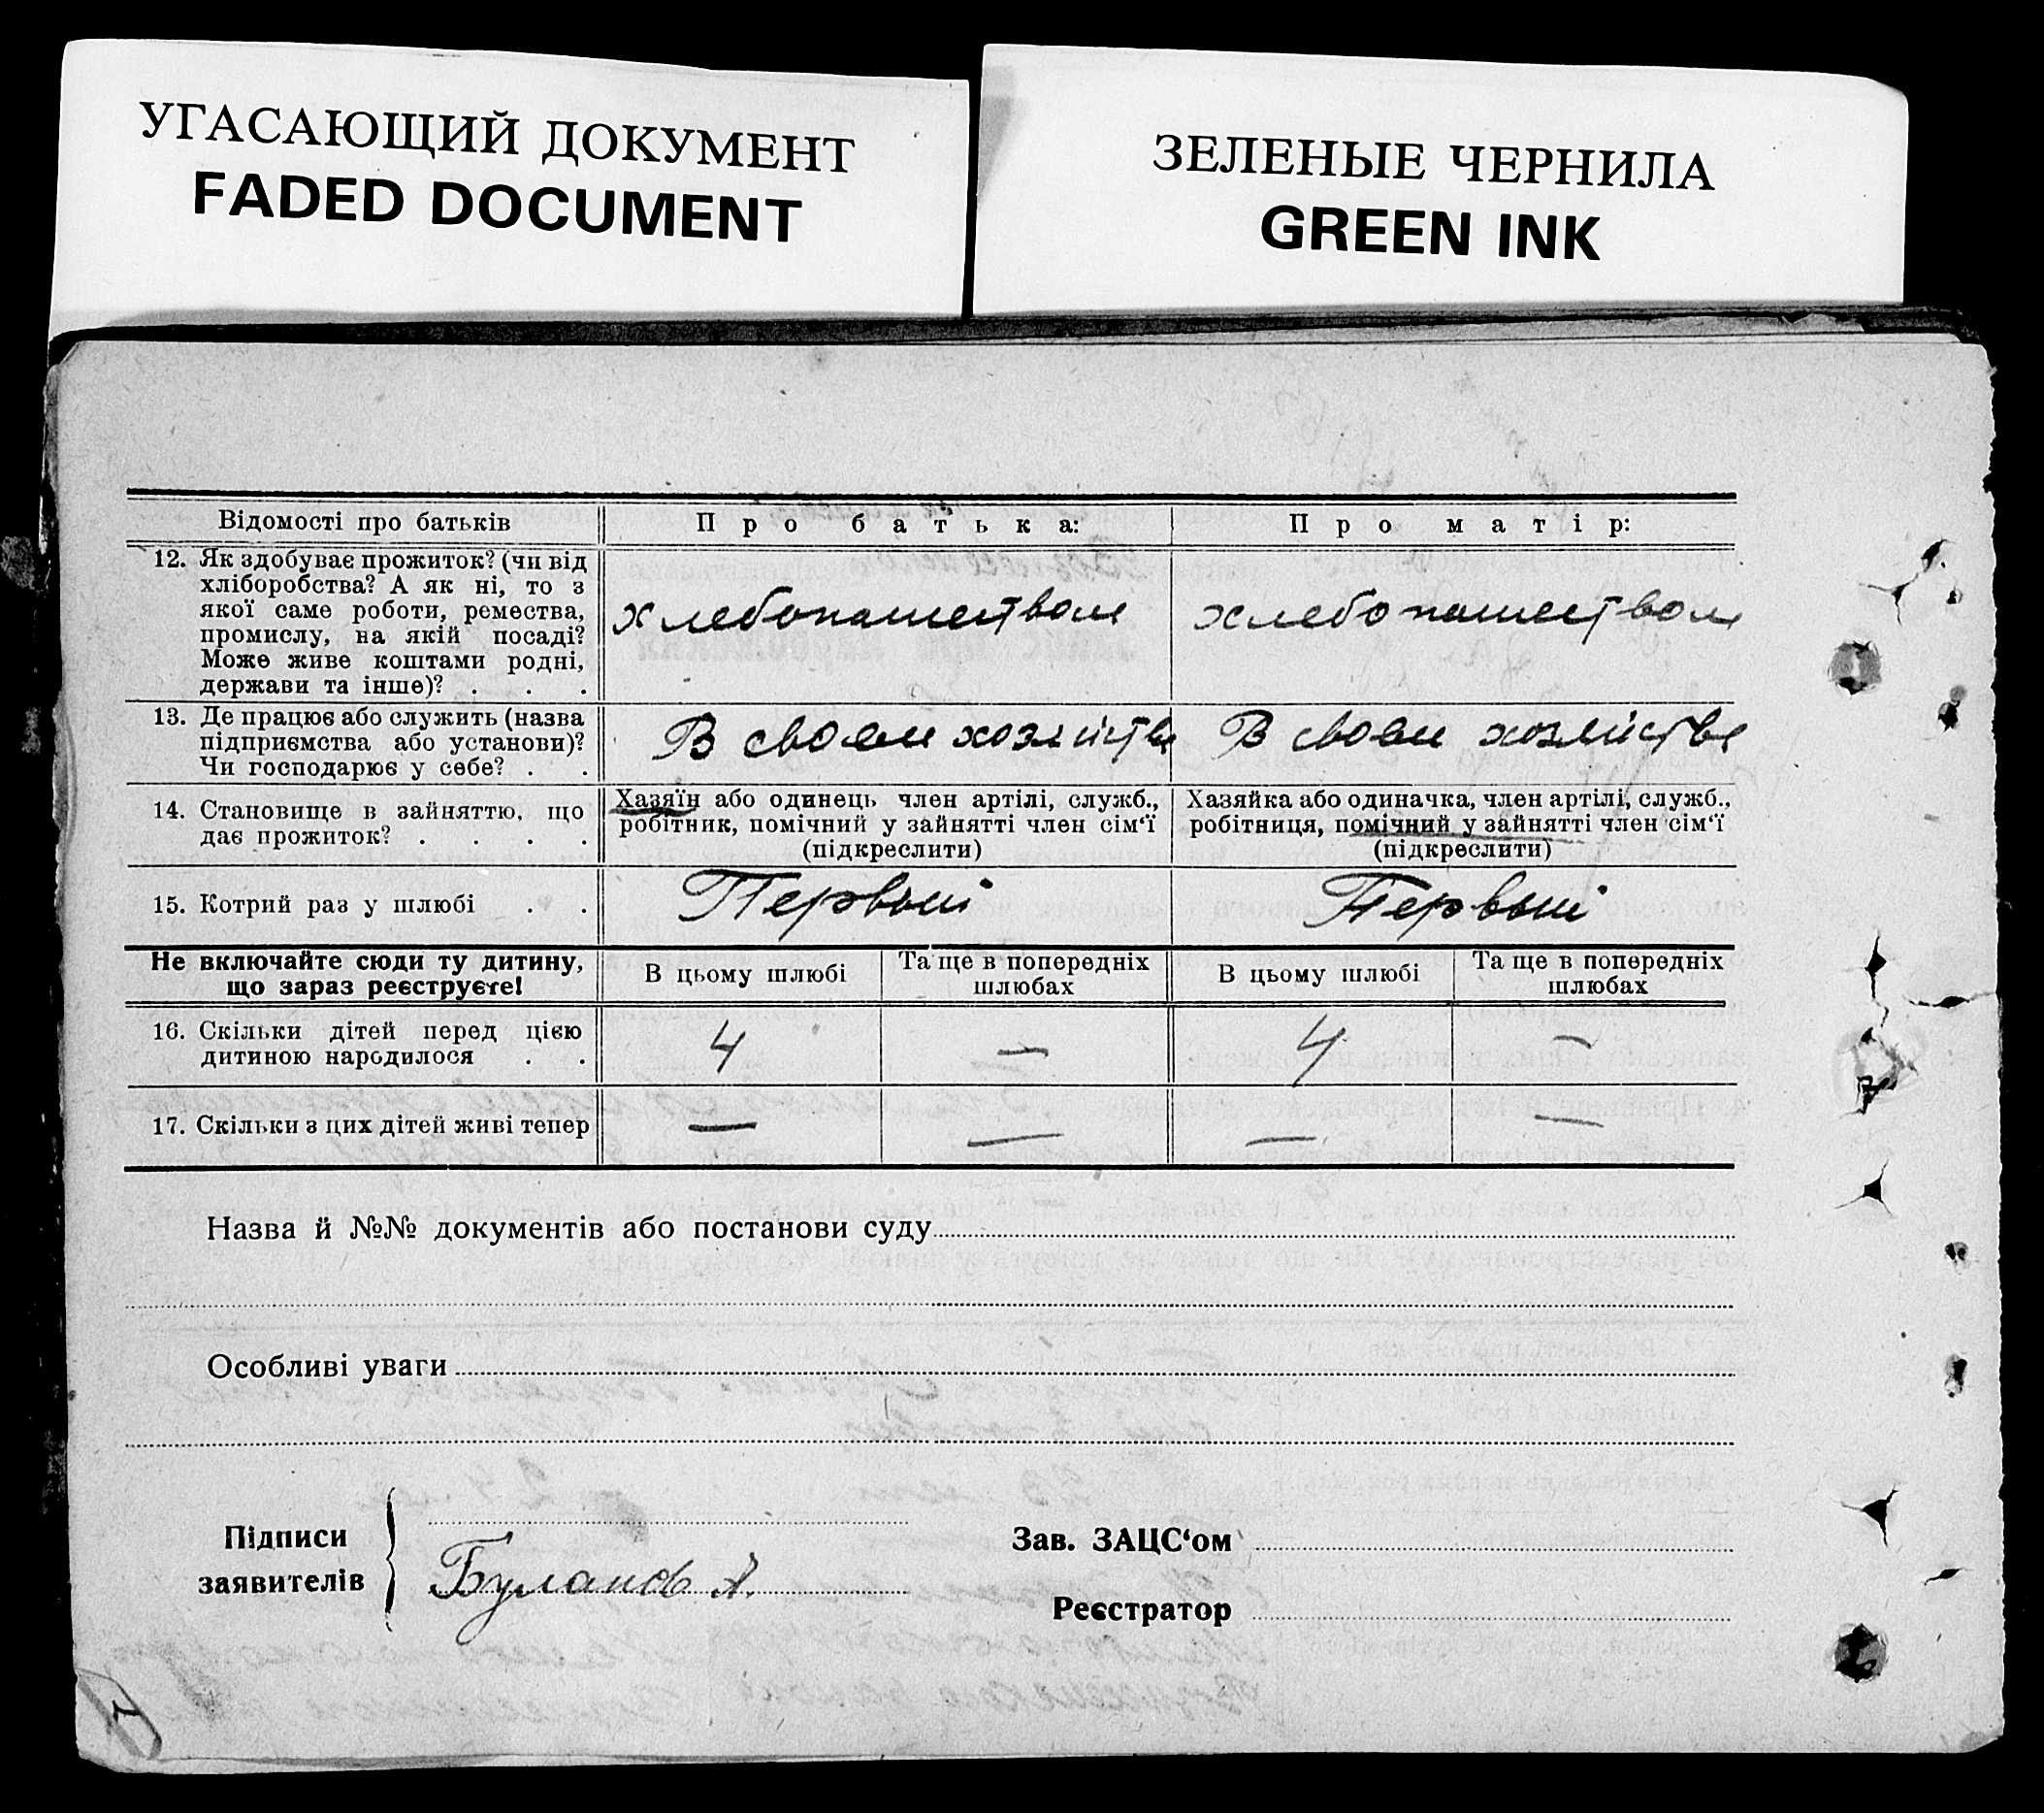 УГАСАЮЩИЙ ДОКУМЕНТ
FADED DOCUMENT
ЗЕЛЕНЫЕ ЧЕРНИЛА
GREEN INK
Відомості про батьків
Про батька:
Про матір:
12. Як здобуває прожиток? (чи від
хліборобства? А як ні, то з
якої саме роботи, ремества,
промислу, на якій посаді?
Може живе коштами родні,
держави та інше)? . . .
хлебопашеством
хлебопашеством
13. Де працює або служить (назва
підприємства або установи)?
Чи господарює у себе? . .
В своем хозяйстве
В своем хозяйстве
14. Становище в зайняттю, що
дає прожиток? . . . .
Хазяїн або одинець член артілі, служб.,
робітник, помічний у зайнятті член сім‘ї
(підкреслити)
Хазяйка або одиначка, член артілі, служб.,
робітниця, помічний у зайнятті член сім‘ї
(підкреслити)
15. Котрий раз у шлюбі . .
Первый
Первый
Не включайте сюди ту дитину,
що зараз реєструєте!
В цьому шлюбі
Та ще в попередніх
шлюбах
В цьому шлюбі
Та ще в попередніх
шлюбах
16. Скільки дітей перед цією
дитиною народилося . .
4
—
4
—
17. Скільки з цих дітей живі тепер
—
—
—
—
Назва й №№ документів або постанови суду
Особливі уваги
Підписи
заявителів
Буланов А.
Зав. ЗАЦС‘ом
Реєстратор